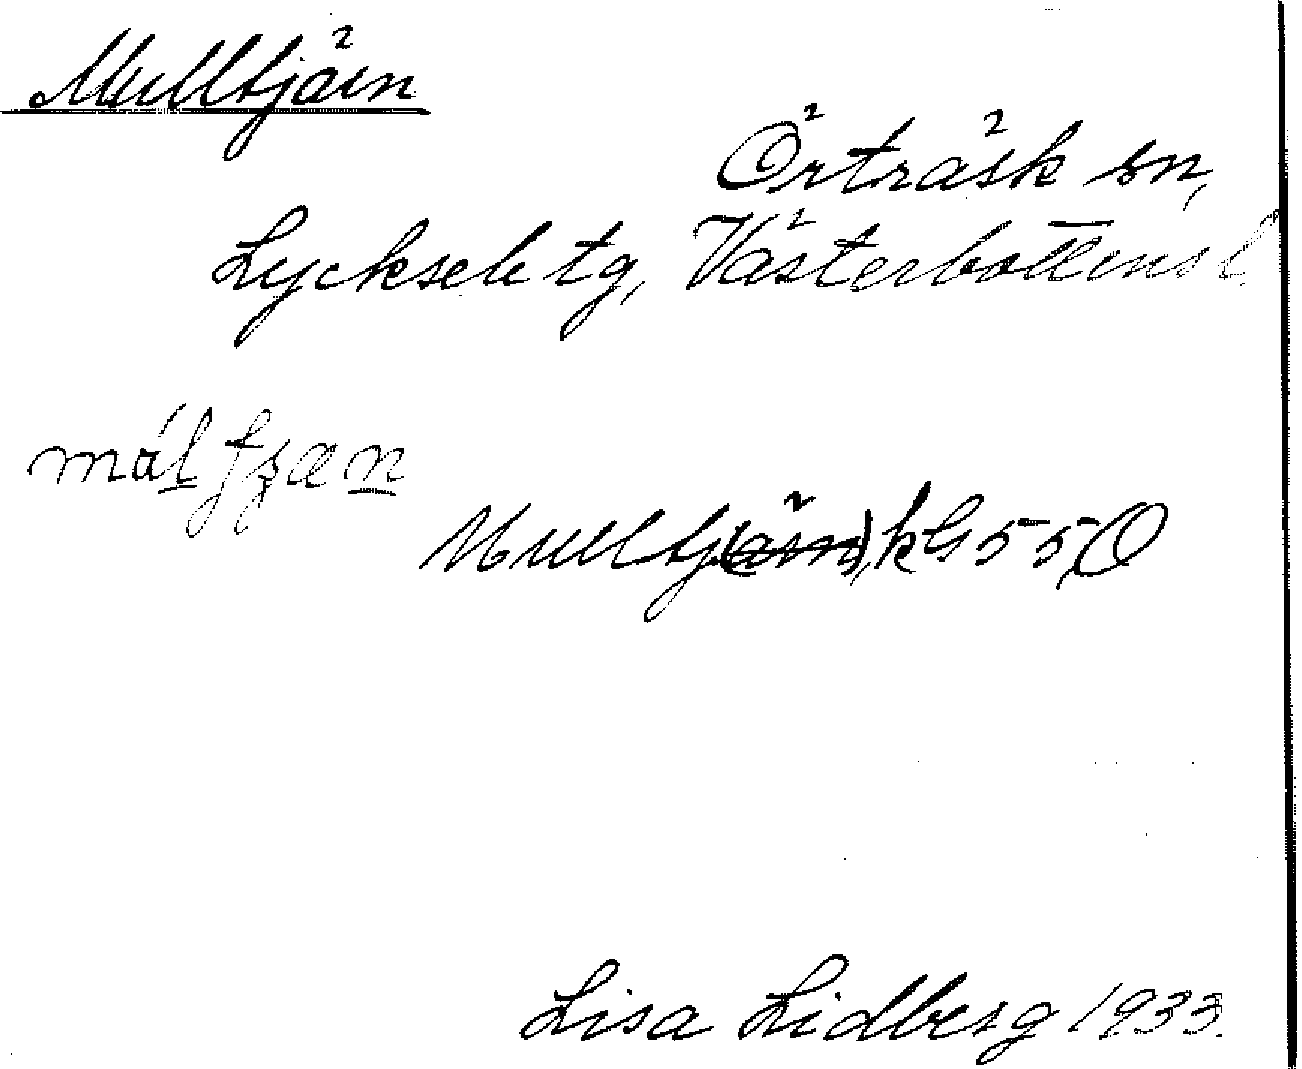 Mulltjärn
Örträsk sn,
Lycksele tg, Västerbottens l.
Mulltj(ärn), k G 55, O
Lisa Lidberg 1933.